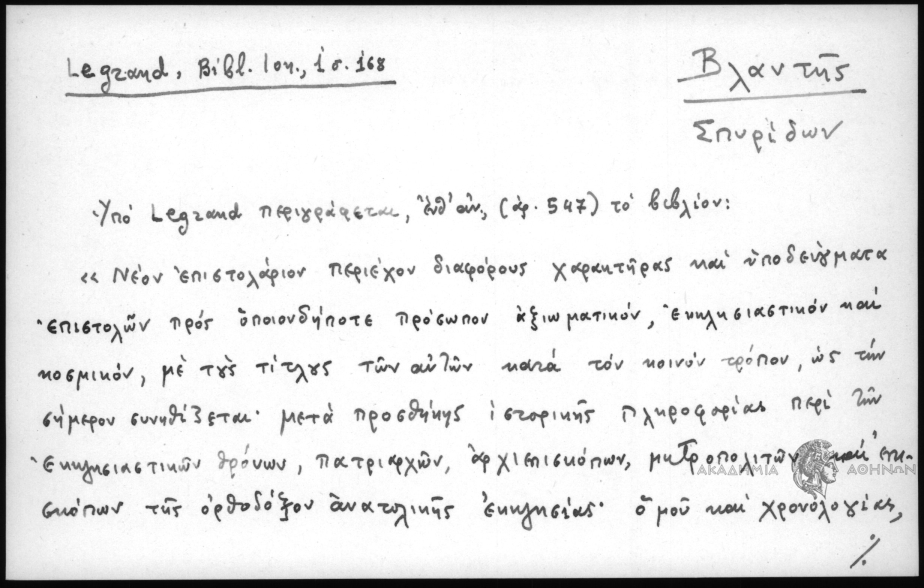 Legrand, Bibl. Ion., 1 σ. 168
Βλαντῆς
Σπυρίδων
Ὑπό Legrand περιγράφεται, ἔνθ' ἀν., (ἀρ. 547) τό βιβλίον:
« Νέον ἐπιστολάριον περιέχον διαφόρους χαρακτῆρας καί ὑποδείγματα
ἐπιστολῶν πρός ὁποιονδήποτε πρόσωπον ἀξιωματικόν, ἐκκλησιαστικόν καί
κοσμικόν, μέ τȣς τίτλȣς τῶν αὐτῶν κατά τόν κοινόν τρόπον, ὡς τήν
σήμερον συνηθίζεται· μετά προσθήκης ἱστορικῆς πληροφορίας περί τῶν
ἐκκλησιαστικῶν θρόνων, πατριαρχῶν, ἀρχιεπισκόπων, μητροπολιτῶν καί ἐπι-
σκόπων τῆς ὀρθοδόξον ἀνατολικῆς ἐκκλησίας· ὁμοῦ καί χρονολογίας,
./.
ΑΚΑΔΗΜΙΑ ΑΘΗΝΩΝ